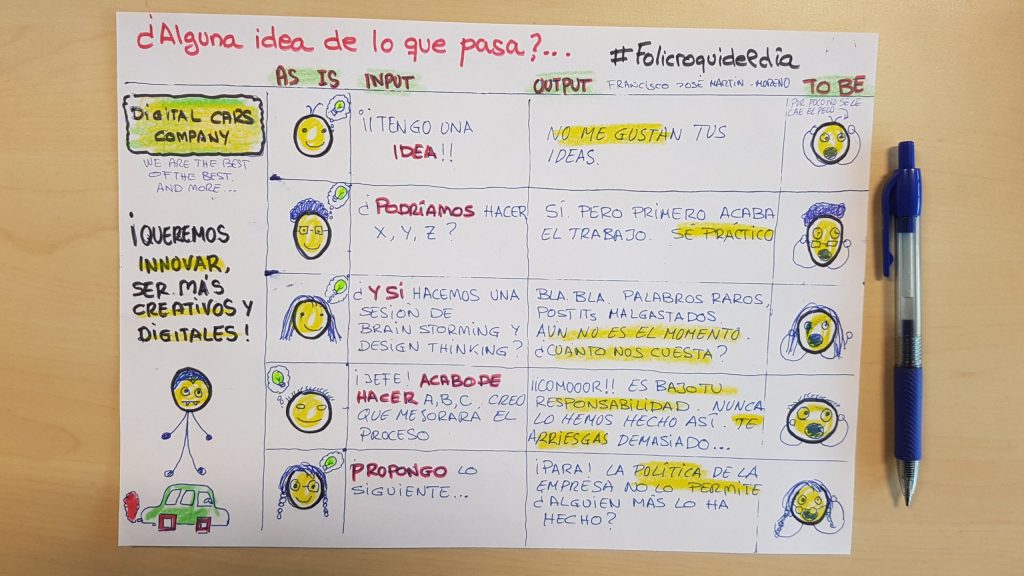 ¿Alguna idea de lo que pasa?...
#Folioroquidel2día
AS IS
INPUT
OUTPUT
FRANCISCO JOSÉ MARTÍN-MORENO
TO BE
DIGITAL CARS
COMPANY
WE ARE THE BEST
OF THE BEST.
AND MORE...
¡QUEREMOS
INNOVAR,
SER MÁS
CREATIVOS Y
DIGITALES!
¡¡TENGO UNA
IDEA!!
NO ME GUSTAN TUS
IDEAS.
¡POR POCO NO SE LE
CAE EL PELO
¿PODRÍAMOS HACER
X, Y, Z?
SÍ. PERO PRIMERO ACABA
EL TRABAJO. SE PRACTICO
¿Y SI HACEMOS UNA
SESIÓN DE
BRAIN STORMING Y
DESIGN THINKING?
BLA. BLA. PALABROS RAROS,
POSTITs MALGASTADOS.
AÚN NO ES EL MOMENTO.
¿CUANTO NOS CUESTA?
¡JEFE! ACABO DE
HACER A, B, C. CREO
QUE MEJORARÁ EL
PROCESO
¡¡COMOOOR!! ES BAJO TU
RESPONSABILIDAD. NUNCA
LO HEMOS HECHO ASÍ. TE
ARRIESGAS DEMASIADO...
PROPONGO LO
SIGUIENTE...
¡PARA! LA POLÍTICA DE LA
EMPRESA NO LO PERMITE
¿ALGUIEN MÁS LO HA
HECHO?